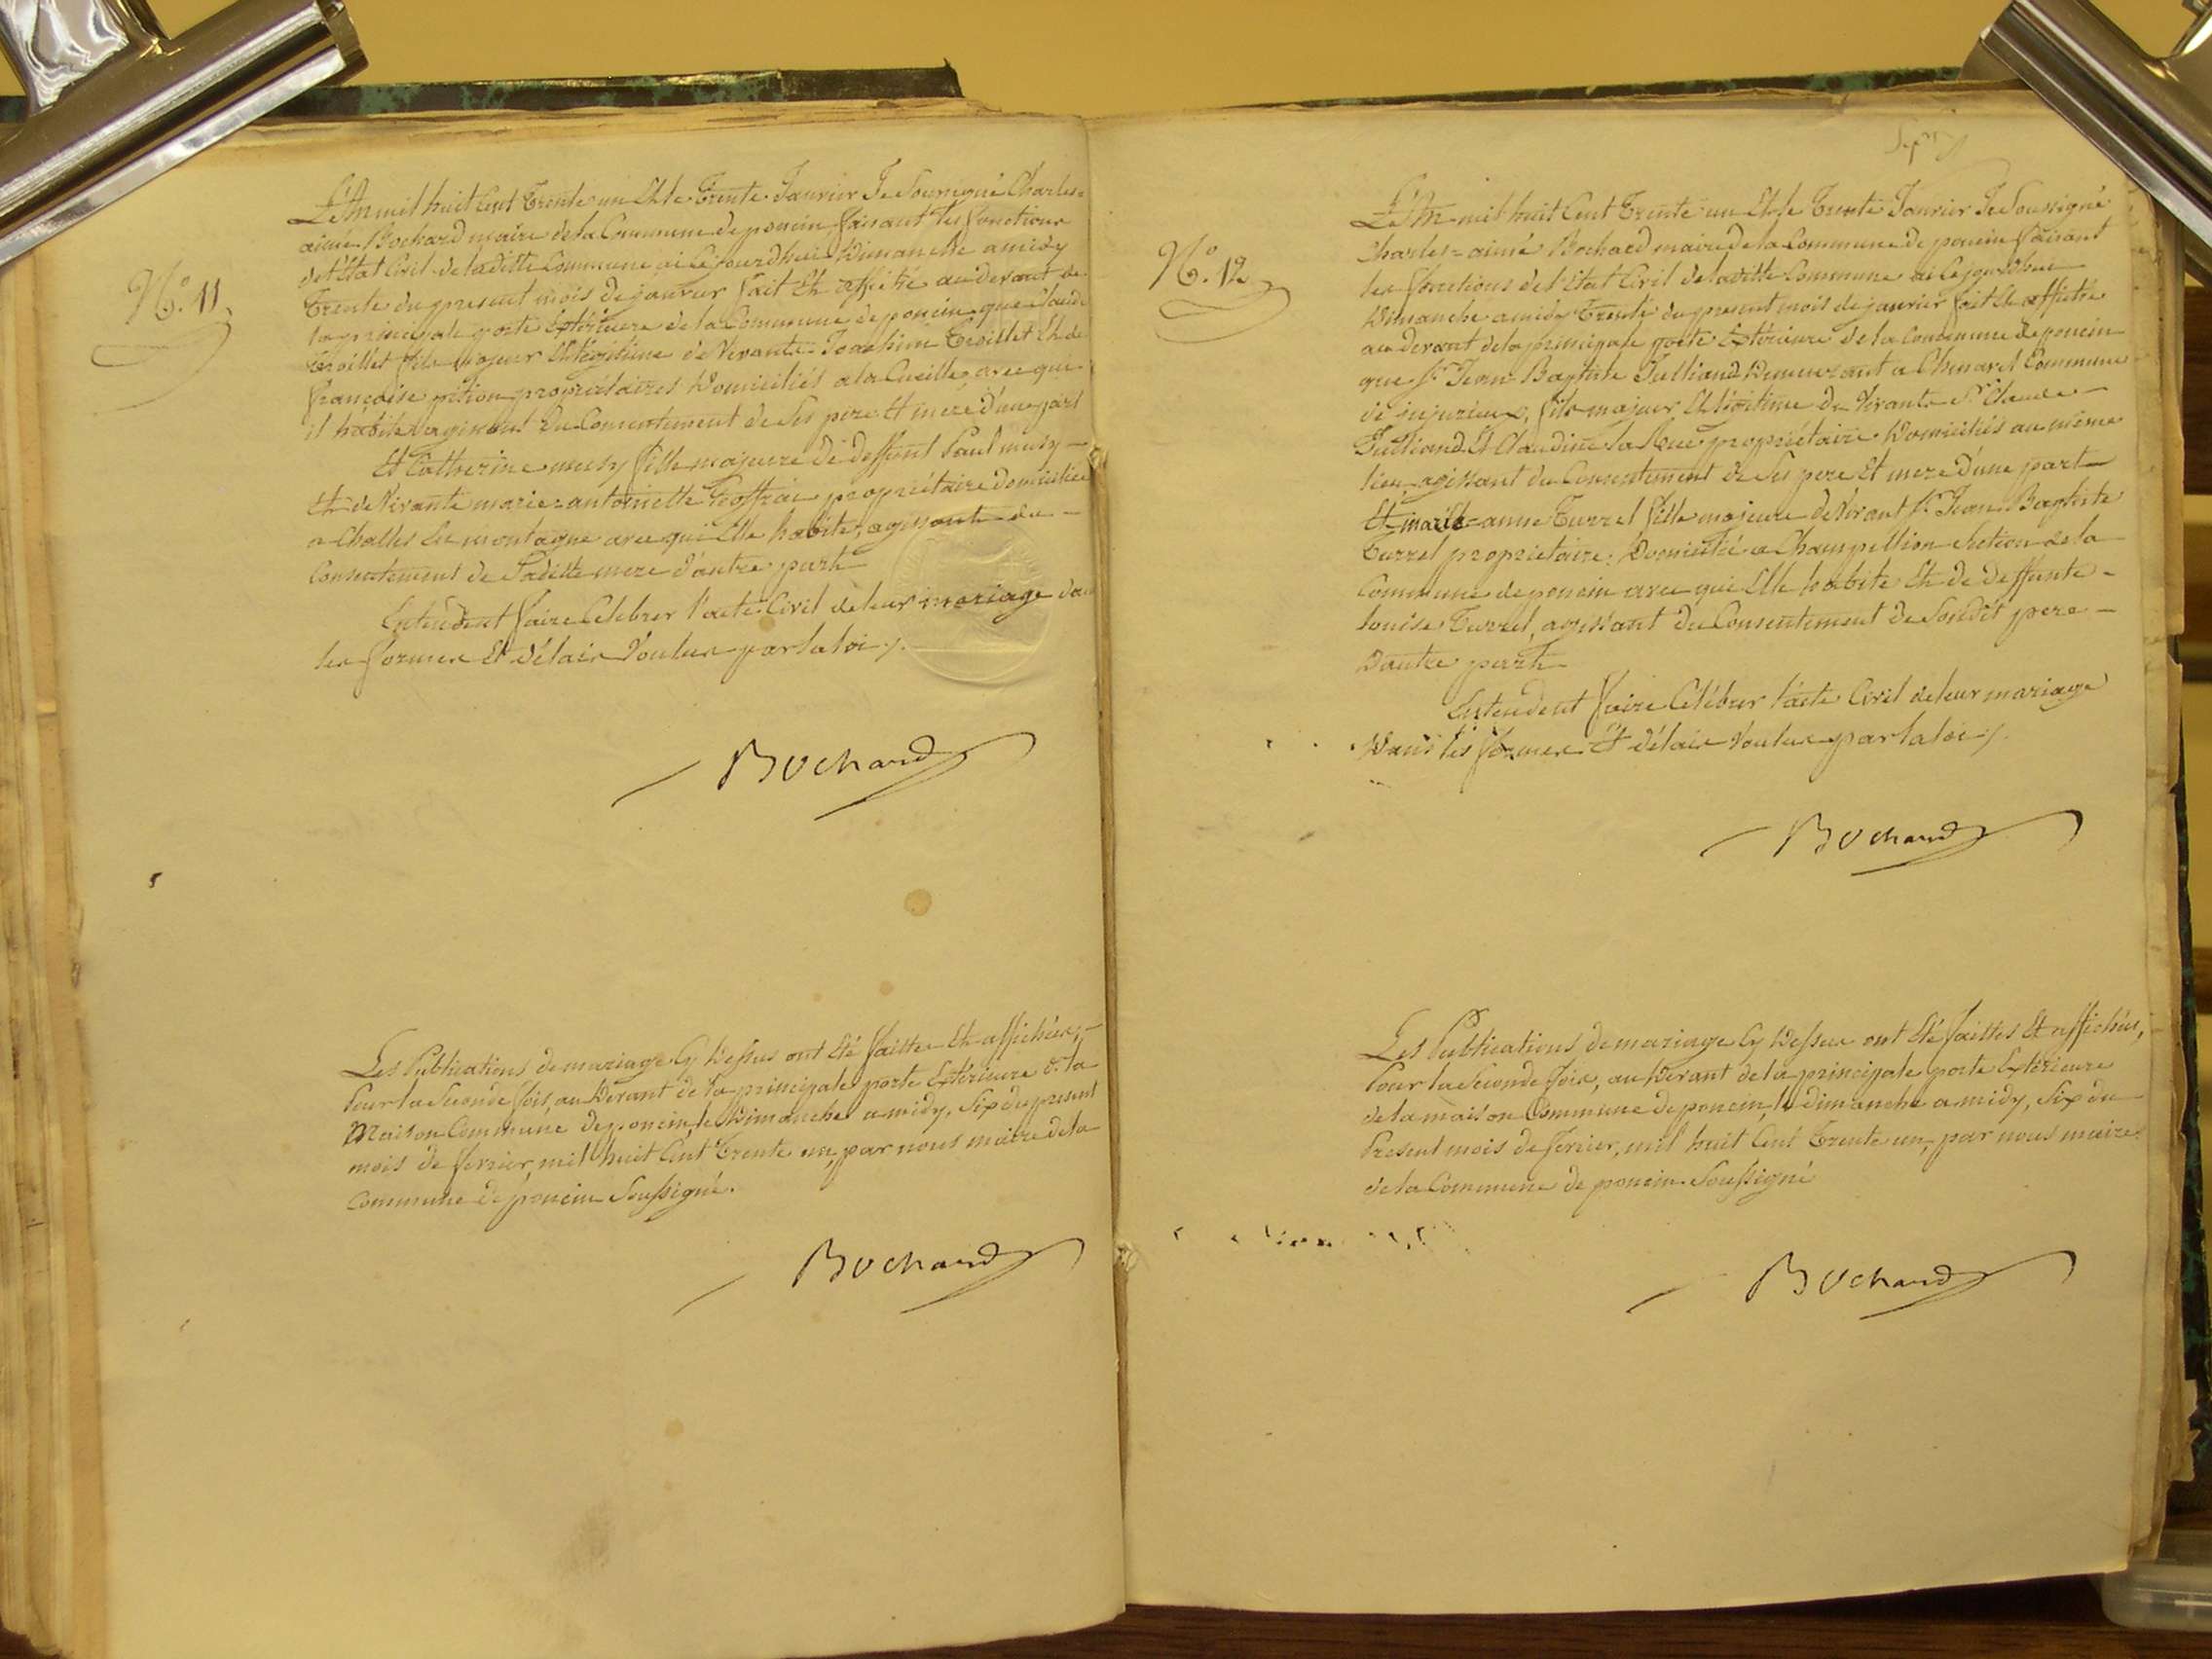 N.o 11.
L'An mil huit Cent Trente un Et le Trente Janvier Je Soussigné Charles=
aimé Bochard maire de la Commune de poncin faisant les fonctions
de l'État Civil de laditte Commune ai Cejourdhui Dimanche a midy
Trente du present mois de janvier fait Et affiché au devant de
la principale porte Extérieure de la Commune de poncin que Claude
Troillet fils majeur Et légitime de Vivants Joachim Troillet Et de
françoise pition propriétaires Domiciliés a la Cueille, avec qui
il habite agissant Du Consentement de Ses père Et mere d'une part
Et Catherine musy fille majeure de deffunt Paul musy —
Et de Vivante marie=antoinette propriétaire domiciliée
a Challes La montagne avec qui Elle habite, agissante du —
Consentement de Saditte mere d'autre part
Entendent faire Celebrer l'acte Civil de leur mariage dans
les formes Et délais Voulus par la loi /.
Bochard
Les Publications de mariage Cy dessus ont Eté faittes Et affichées, —
Pour la Seconde fois, au Devant de la principale porte Extérieure de la
Maison Commune de poncin, le Dimanche a midy, Six du present
mois de fevrier, mil huit Cent Trente un, par nous maire de la
Commune de poncin Soussigné.
Bochard
N.o 12
L'An mil huit Cent Trente un Et le Trente Janvier Je Soussigné
Charles=aimé Bochard maire de la Commune de poncin faisant
les fonctions de l'État Civil de laditte Commune ai Cejourdhui
Dimanche a midy Trente du present mois de janvier fait Et affiché
au devant de la principale porte Extérieure de la Commune de poncin
que Sr. Jean Baptiste Julliand Demeurant a Chenavel Commune
de jujurieux, fils majeur Et légitime de Vivants Sr. Claude —
Julliand Et Claudine la Rue propriétaire Domiciliés au même
lieu agissant du Consentement de Ses pere Et mere d'une part
Et marie=anne Turrel fille majeure de Vivant Sr. Jean Baptiste
Turrel propriétaire Domicilié a Champeillion Section de la
Commune de poncin avec qui Elle habite Et de deffunte —
louise Turrel, agissant du Consentement de Sondit pere —
D'autre part
Entendent faire Célébrer l'acte Civil de leur mariage
Dans les formes Et délais Voulus par la loi /.
Bochard
Les Publications de mariage Cy Dessus ont Eté faittes Et affichées,
Pour la Seconde fois, au Devant de la principale porte Extérieure
de la maison Commune de poncin, le dimanche a midy, Six du
Present mois de fevrier, mil huit Cent Trente un, par nous maire
de la Commune de poncin Soussigné
Bochard